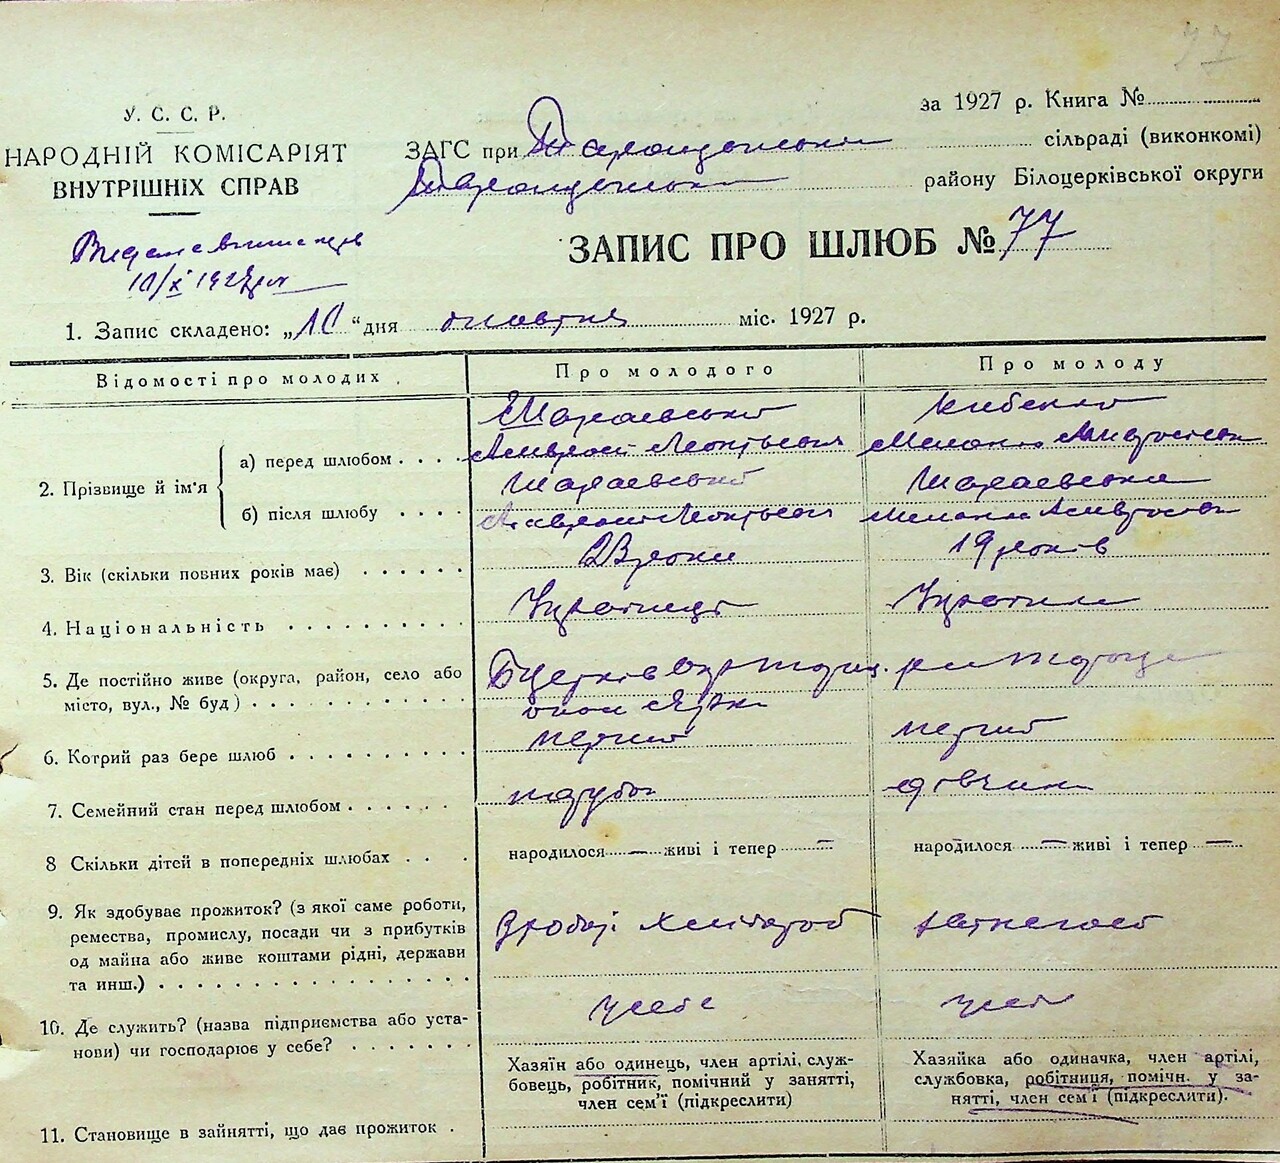 77
У. С. С. Р.
НАРОДНІЙ КОМІСАРІЯТ
ВНУТРІШНІХ СПРАВ
за 1927 р. Книга №
ЗАГС при Таращанськім сільраді (виконкомі)
Таращанського району Білоцерківської округи
10/X 1927
ЗАПИС ПРО ШЛЮБ № 77
1. Запис складено: „10“ дня жовтня міс. 1927 р.
Відомості про молодих
Про молодого
Про молоду
2. Прізвище й ім'я
а) перед шлюбом
Шараевський
Амвросій Леонтьевич
Амвросієвна
б) після шлюбу
Шараевський
Амвросій Леонтьевич
Шараевська
Амвросієвна
3. Вік (скільки повних років має)
22 роки
19 років
4. Національність
Українець
Українка
5. Де постійно живе (округа, район, село або
місто, вул., № буд)
6. Котрий раз бере шлюб
перший
перший
7. Семейний стан перед шлюбом
парубок
дівчина
8 Скільки дітей в попередніх шлюбах
народилося — живі і тепер —
народилося — живі і тепер —
9. Як здобуває прожиток? (з якої саме роботи,
ремества, промислу, посади чи з прибутків
од майна або живе коштами рідні, держави
та инш.)
Хлібороб
10. Де служить? (назва підприємства або уста-
нови) чи господарює у себе?
у себе
у себе
Хазяїн або одинець, член артілі, служ-
бовець, робітник, помічний у занятті,
член сем'ї (підкреслити)
Хазяйка або одиначка, член артілі,
службовка, робітниця, помічн. у за-
нятті, член сем'ї (підкреслити).
11. Становище в зайнятті, що дає прожиток